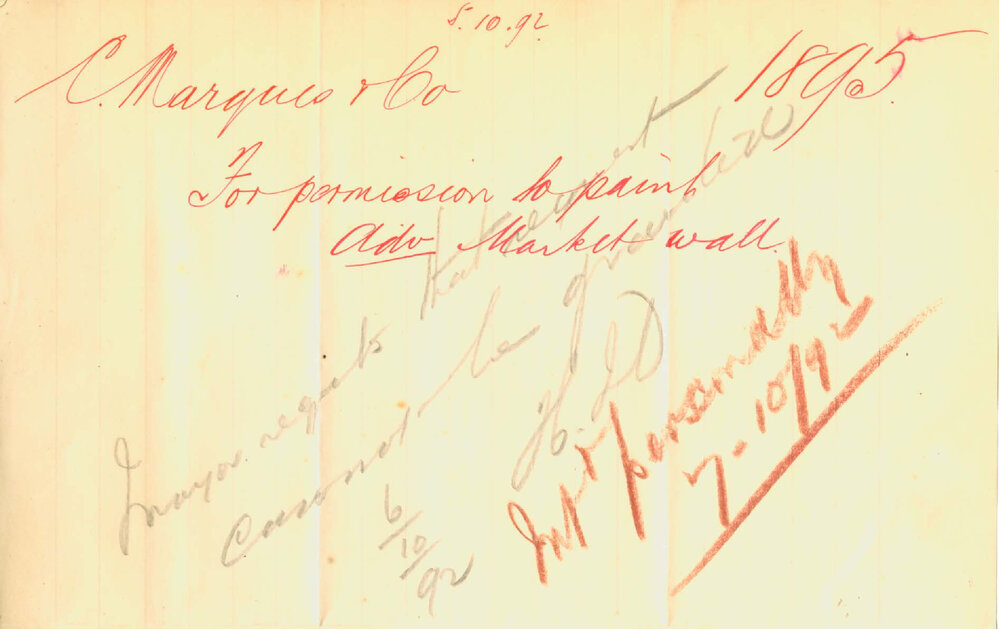 5.10.92
C. Marques & Co 1895
For permission to paint
Adv Market wall.
Mayor regrets that request
Cannot be granted
H. J D
6/10/92
personally
7-10/92